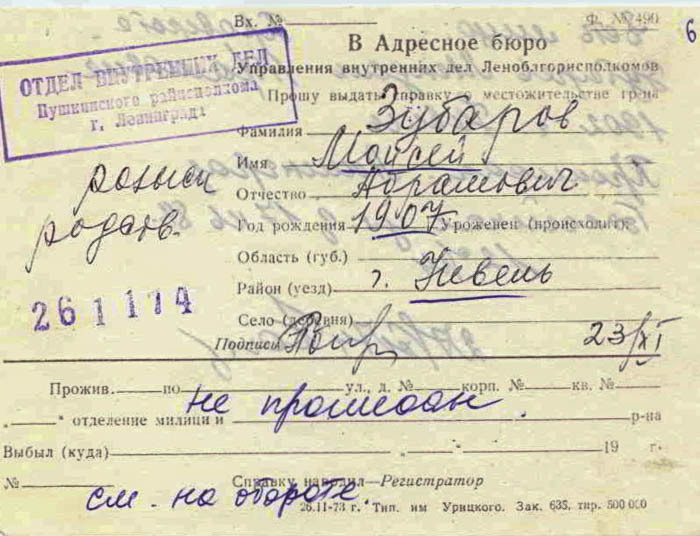 Вх. № Ф. № 490
6
В Адресное бюро
Управления внутренних дел Леноблгорисполкомов
ОТДЕЛ ВНУТРЕННИХ ДЕЛ
Пушкинского райисполкома
г. Ленинграда
Прошу выдать справку о местожительстве гр-на
Фамилия Зубаров
Имя Мойсей
розыск
родств.
Отчество Абрамович
Год рождения 1907 Уроженец (происходит):
Область (губ.)
Район (уезд) г. Невель
261174
Село (деревня)
Подпись 23/XI
Прожив. по ул., д. № корп. № кв. №
„ “ отделение милиции р-на
не прописан
Выбыл (куда) „ “ 19 г.
№ Справку наводил—Регистратор
см. на обороте.
26.11-73 г. Тип. им Урицкого. Зак. 635, тир. 500 000